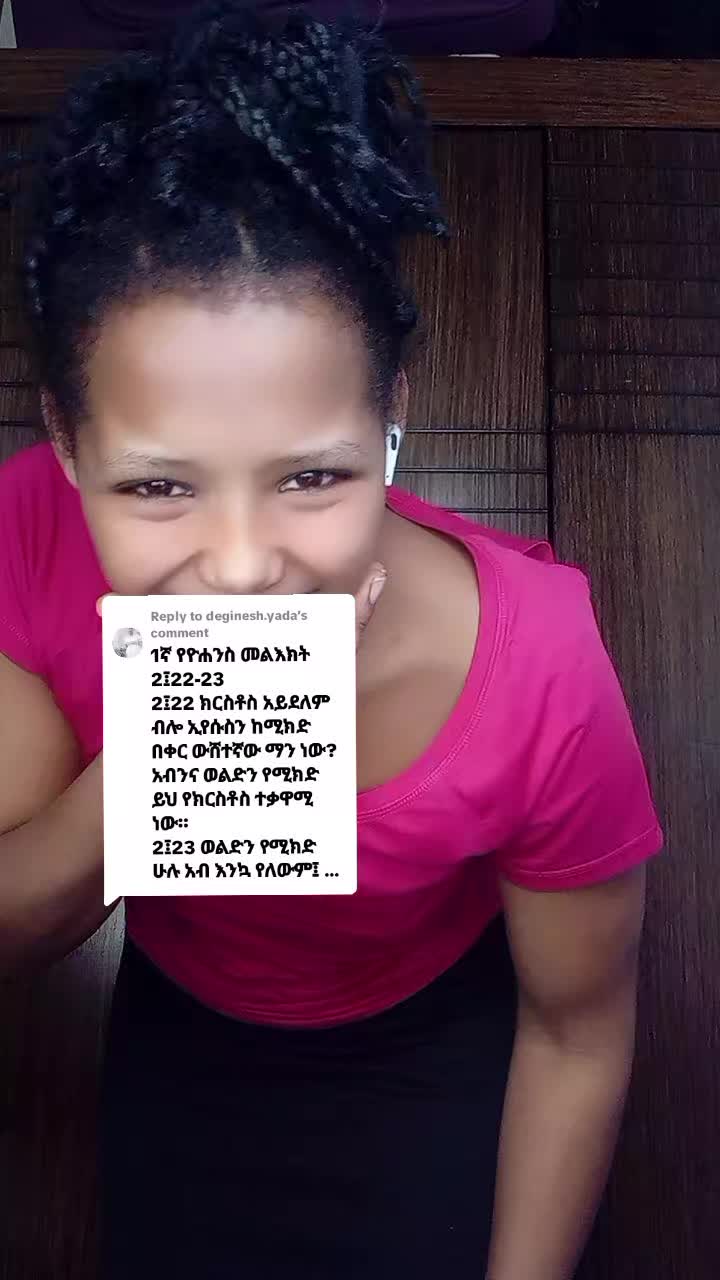 Reply to deginesh.yada's
comment
1ኛ የዮሐንስ መልእክት
2፤22-23
2፤22 ክርስቶስ አይደለም
ብሎ ኢየሱስን ከሚክድ
በቀር ውሸተኛው ማን ነው?
አብንና ወልድን የሚክድ
ይህ የክርስቶስ ተቃዋሚ
ነው።
2፤23 ወልድን የሚክድ
ሁሉ አብ እንኳ የለውም፤ ...